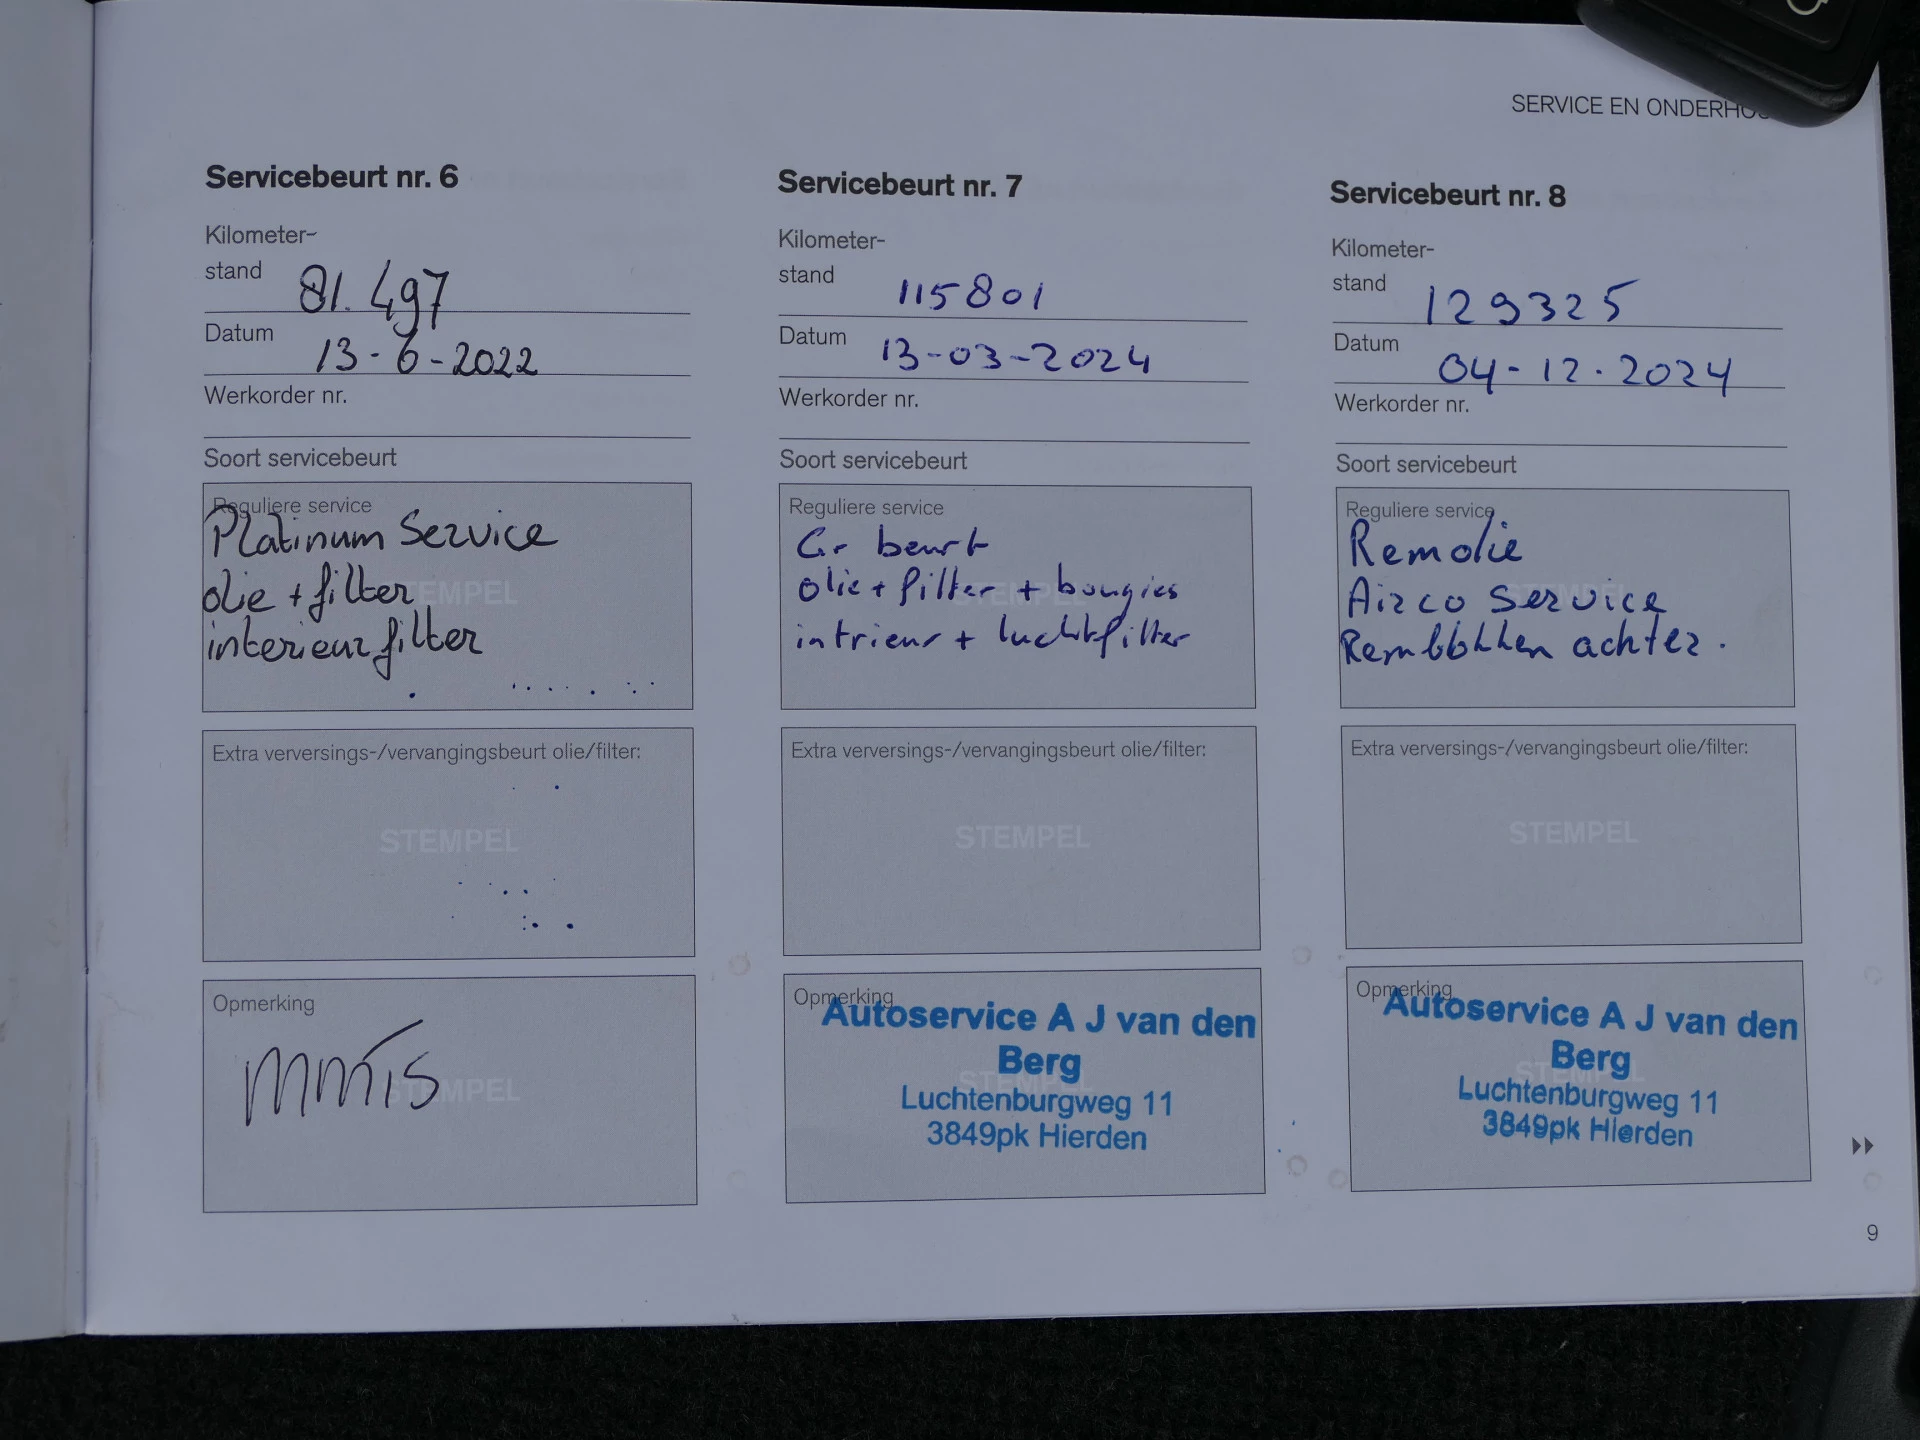 SERVICE EN ONDERHOU
Servicebeurt nr. 6
Kilometer-
stand 81.497
Datum 13-6-2022
Werkorder nr.
Soort servicebeurt
Reguliere service
Platinum Service
olie + filter
STEMPEL
interieurfilter
Extra verversings-/vervangingsbeurt olie/filter:
STEMPEL
Opmerking
STEMPEL
Servicebeurt nr. 7
Kilometer-
stand 115801
Datum 13-03-2024
Werkorder nr.
Soort servicebeurt
Reguliere service
Gr beurt
olie + filter + bougies
STEMPEL
intrieur + luchtfilter
Extra verversings-/vervangingsbeurt olie/filter:
STEMPEL
Opmerking
Autoservice A J van den
Berg
STEMPEL
Luchtenburgweg 11
3849pk Hierden
Servicebeurt nr. 8
Kilometer-
stand 129325
Datum 04-12.2024
Werkorder nr.
Soort servicebeurt
Reguliere service
Remolie
Airco Service
STEMPEL
Remblokken achter.
Extra verversings-/vervangingsbeurt olie/filter:
STEMPEL
Opmerking
Autoservice A J van den
Berg
STEMPEL
Luchtenburgweg 11
3849pk Hierden
9